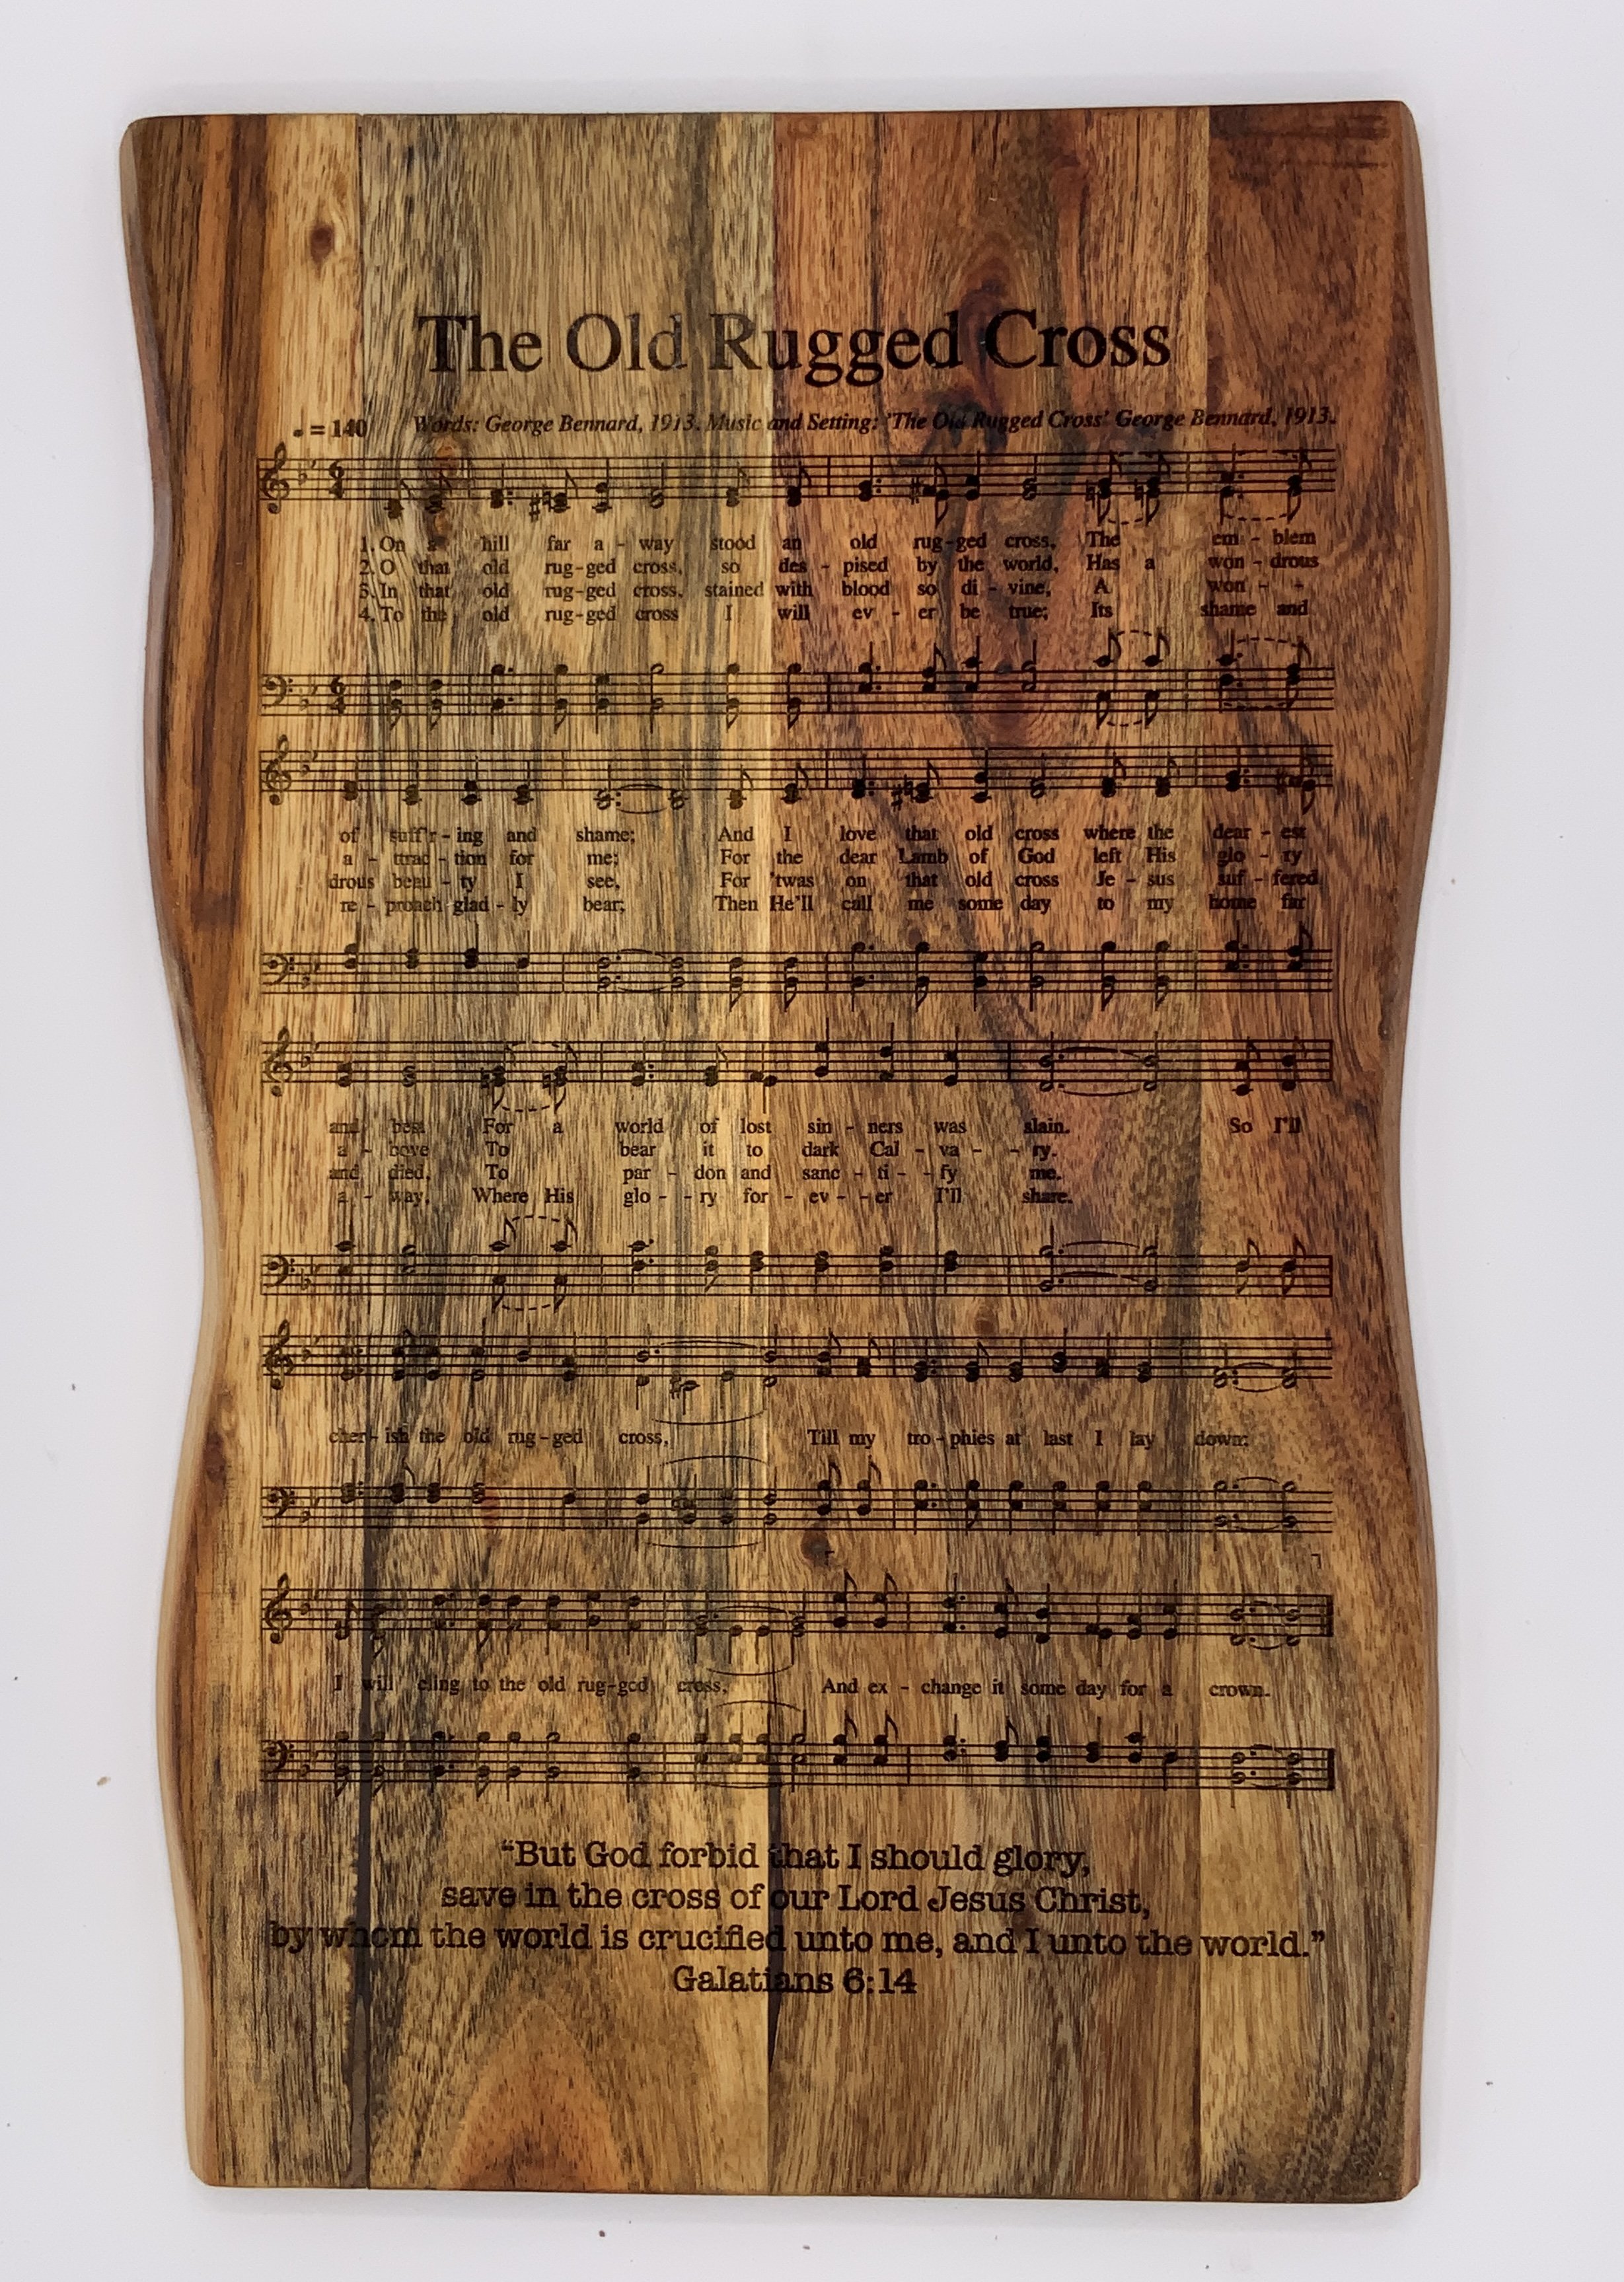 The Old Rugged Cross
= 140 Words: George Bennard, 1913. Music and Setting: 'The Old Rugged Cross' George Bennard, 1913.
6 4
1. On a hill far a - way stood an old rug-ged cross, The em - blem
2. O that old rug-ged cross, so des - pised by the world, Has a won - drous
3. In that old rug-ged cross, stained with blood so di - vine, A won - -
4. To the old rug-ged cross I will ev - er be true; Its shame and
6 4
of suff'r - ing and shame; And I love that old cross where the dear - est
a - ttrac - tion for me; For the dear Lamb of God left His glo - ry
drous beau - ty I see, For 'twas on that old cross Je - sus suf - fered
re - proach glad - ly bear; Then He'll call me some day to my home far
and best For a world of lost sin - ners was slain. So I'll
a - bove To bear it to dark Cal - va - - ry.
and died, To par - don and sanc - ti - - fy me.
a - way, Where His glo - - ry for - ev - - er I'll share.
cher - ish the old rug - ged cross, Till my tro - phies at last I lay down;
I will cling to the old rug-ged cross, And ex - change it some day for a crown.
“But God forbid that I should glory,
save in the cross of our Lord Jesus Christ,
by whom the world is crucified unto me, and I unto the world.”
Galatians 6:14